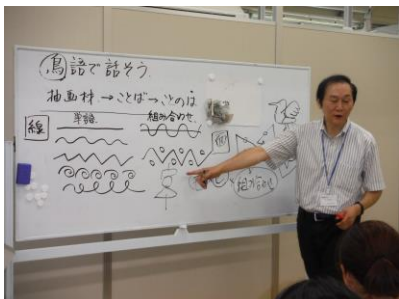 鳥語で話そう
描画材→ことば→ことのは
線
単語
組み合わせ